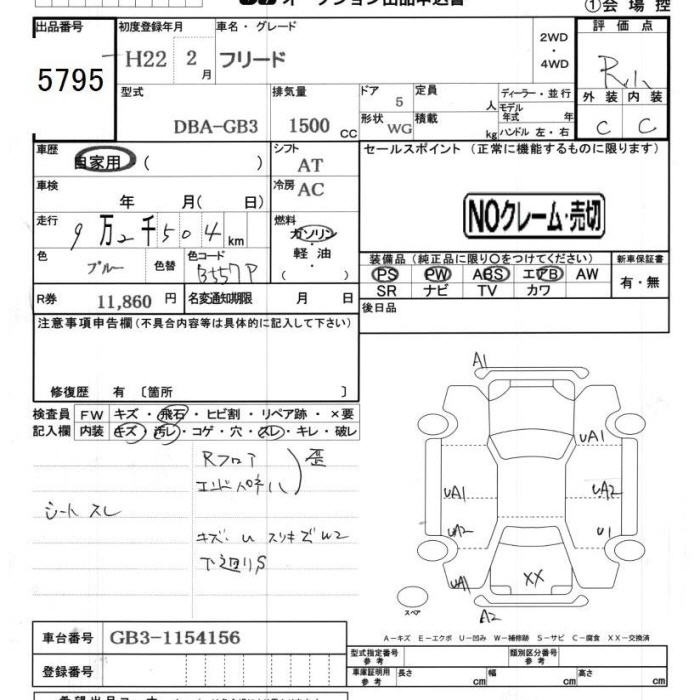 オークション出品申込書
①会場控
出品番号 初度登録年月 車名・グレード 2WD・4WD 評価点
5795 H22 2月 フリード
型式 排気量 ドア 5 定員 人 ディーラー・並行
DBA-GB3 1500 CC 形状 WG 積載 kg モデル年式 年
ハンドル 左・右
外装 内装
C C
車歴 自家用 ( ) シフト AT
セールスポイント (正常に機能するものに限ります)
車検 年 月( 日) 冷房 AC
NOクレーム・売切
走行 9万2千504km 燃料 ガソリン・軽油 ( )
色 ブルー 色替 色コード B557P
装備品 (純正品に限り○をつけてください) 新車保証書
PS PW ABS エアB AW 有・無
SR ナビ TV カワ
R券 11,860 円 名変通知期限 月 日
後日品
注意事項申告欄 (不具合内容等は具体的に記入して下さい)
修復歴 有 〔箇所 〕
検査員 FW キズ・飛石・ヒビ割・リペア跡・×要
記入欄 内装 キズ・汚レ・コゲ・穴・スレ・キレ・破レ
Rフロア
エンドパネル 歪
シート スレ
キズ・U スリキズW2
下廻りS
A1
UA1
UA1 UA2
UA2 U1
UA1 XX
A2
スペア
A-キズ E-エクボ U-凹み W-補修跡 S-サビ C-腐食 XX-交換済
車台番号 GB3-1154156
型式指定番号 参考 類別区分番号 参考
登録番号
車庫証明用 参考 長さ cm 幅 cm 高さ cm